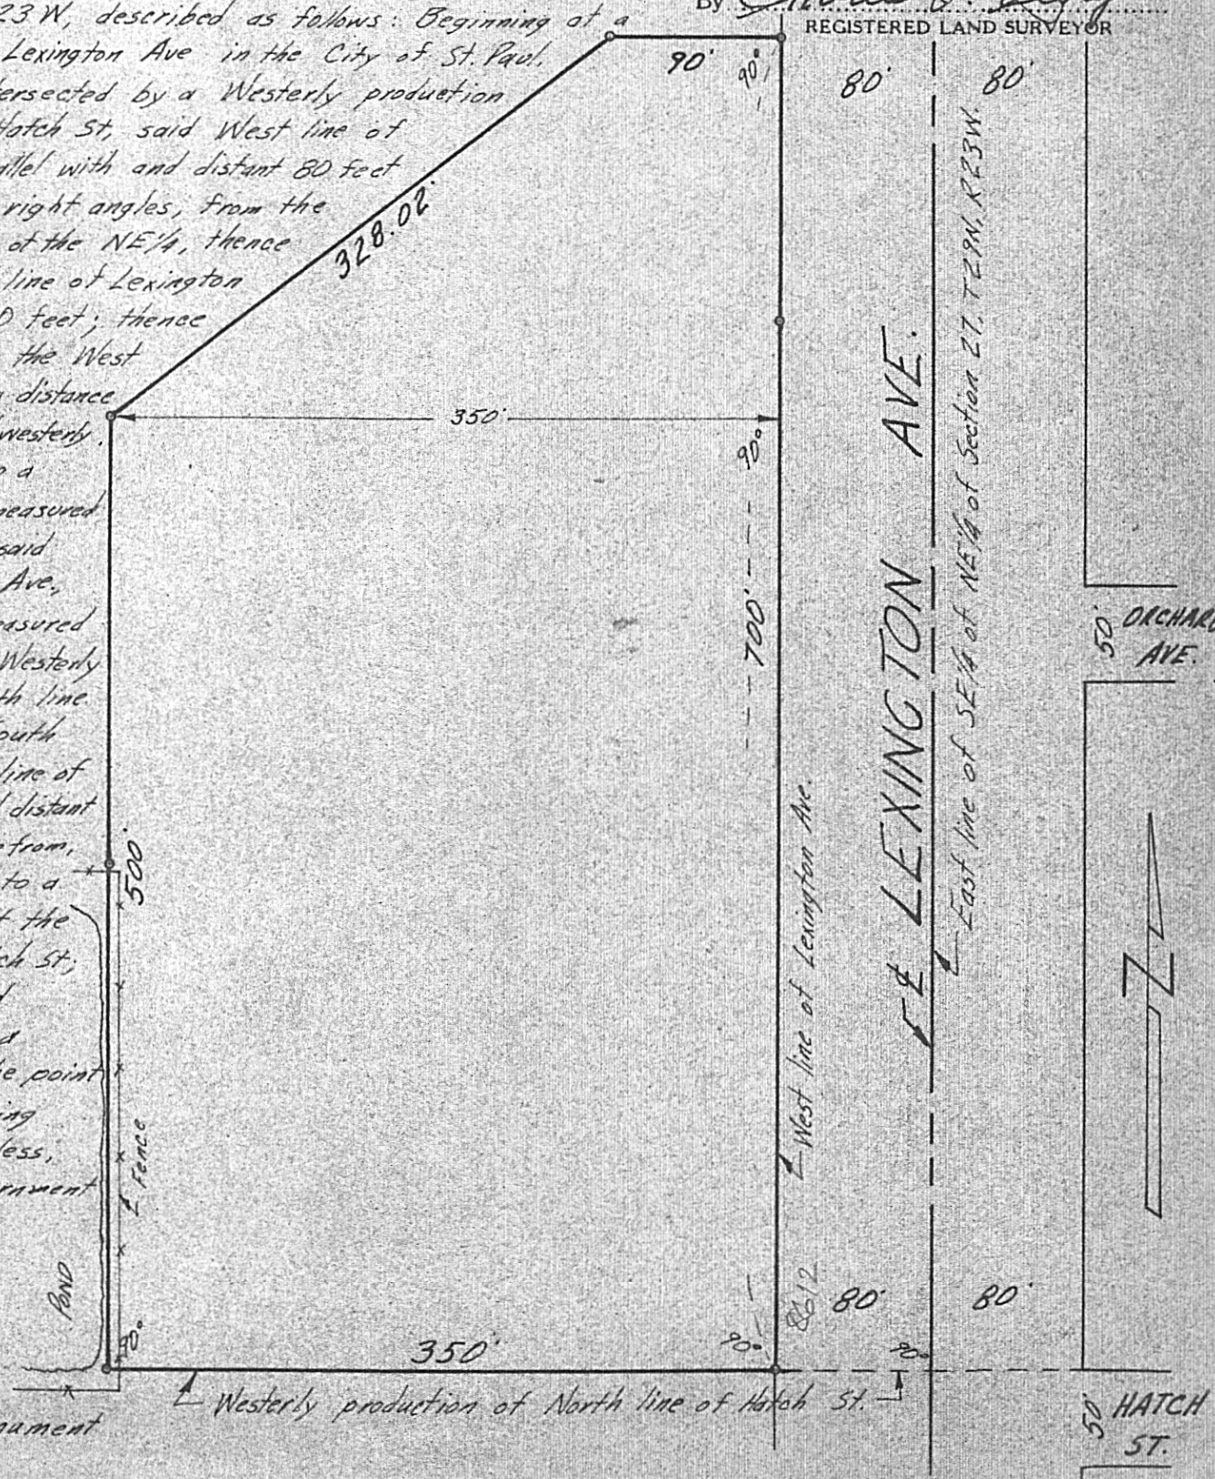 23 W, described as follows: Beginning at a
Lexington Ave in the City of St. Paul.
ersected by a Westerly production
Hatch St, said West line of
allel with and distant 80 feet
right angles, from the
of the NE¼, thence
line of Lexington
0 feet; thence
the West
distance
westerly.
a
measured
said
Ave.,
easured
Westerly
th line
outh
line of
distant
from,
to a
t the
ch St;
d
d
e point
ing
ess,
rnment
nament
By
REGISTERED LAND SURVEYOR
90'
90°
80'
80'
328.02'
350'
90°
700'
500'
Fence
POND
90°
350'
90°
West line of Lexington Ave.
℄ LEXINGTON AVE.
East line of SE¼ of NE¼ of Section 27, T29N, R23W.
ORCHARD
AVE.
50'
N
8612
80'
80'
90°
Westerly production of North line of Hatch St.
50'
HATCH
ST.